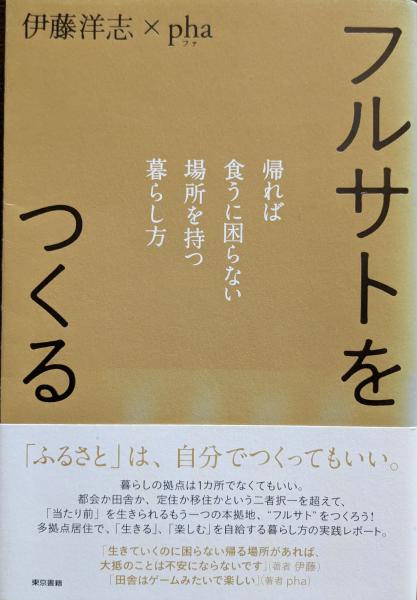 伊藤洋志×pha
ファ
フルサトを
つくる
帰れば
食うに困らない
場所を持つ
暮らし方
「ふるさと」は、自分でつくってもいい。
暮らしの拠点は1カ所でなくてもいい。
都会か田舎か、定住か移住かという二者択一を超えて、
「当たり前」を生きられるもう一つの本拠地、“フルサト”をつくろう!
多拠点居住で、「生きる」、「楽しむ」を自給する暮らし方の実践レポート。
「生きていくのに困らない帰る場所があれば、
大抵のことは不安にならないです」(著者 伊藤)
「田舎はゲームみたいで楽しい」(著者 pha)
東京書籍